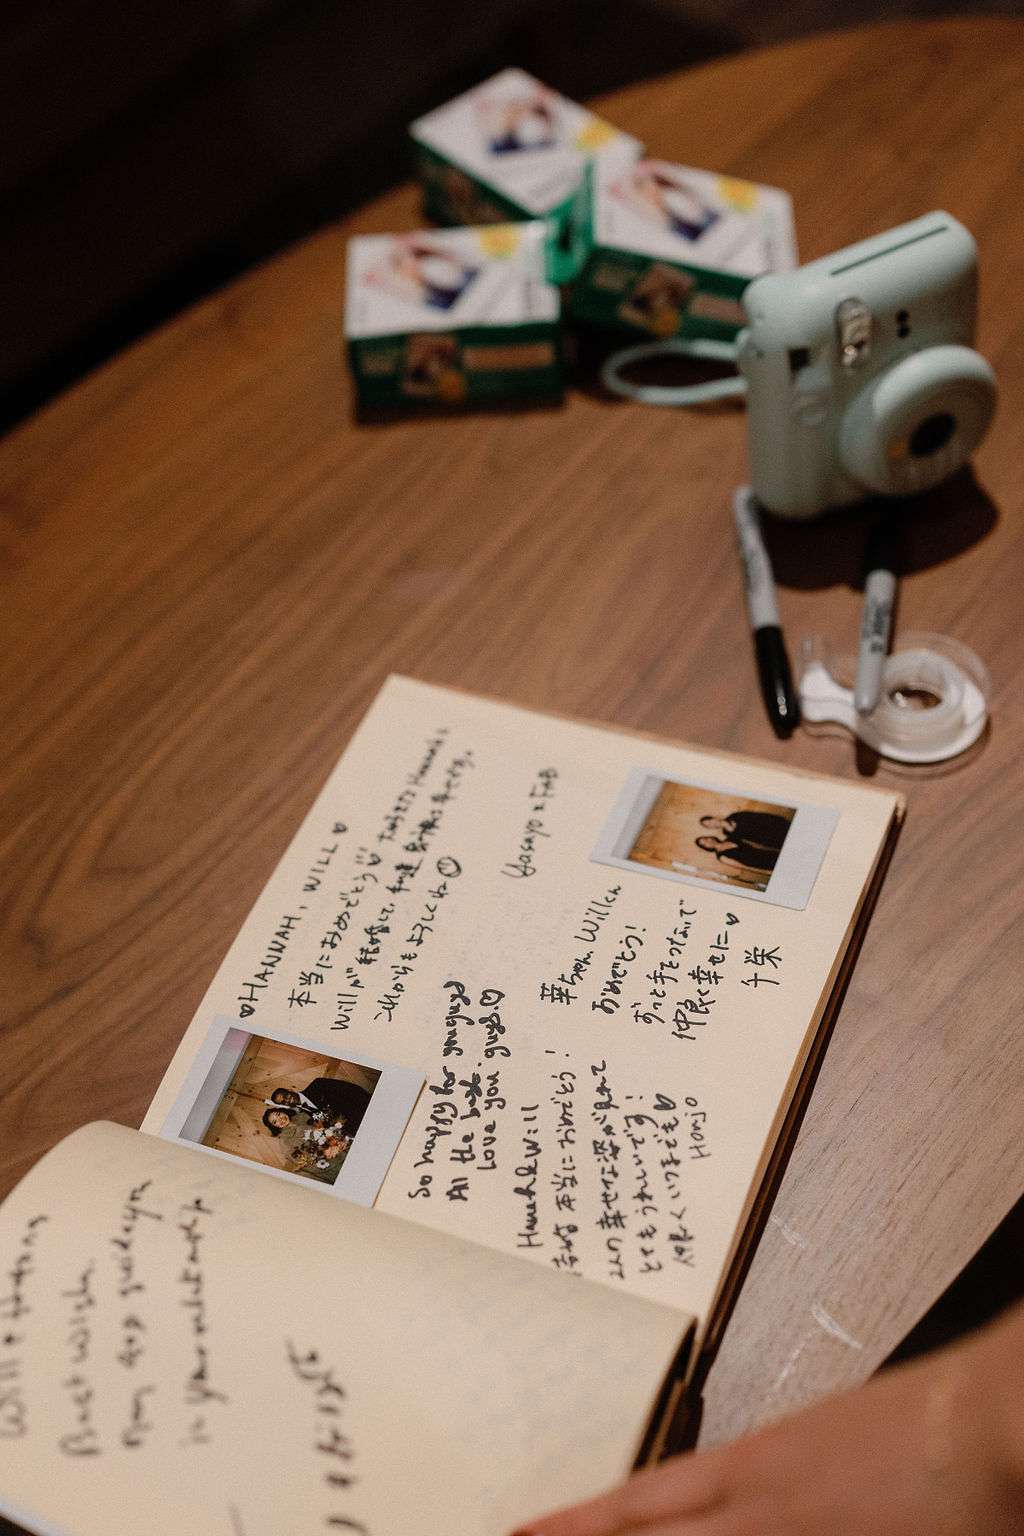 ♥HANNAH, WILL♥
本当におめでとう
Willが結婚して、
これからもよろしくね☺
So happy for youguys
All the best.
Love you guys.♡
Yasayo & FAB
華ちゃん、Willくん
おめでとう！
ずっと手をつないで
仲良く幸せに♥
千栄
Hannah & Will
本当におめでとう！
2人の幸せな姿が見れて
とてもうれしいです！
仲良くいつまでも♥
Honjo
Will & Hannah
Best wishes
May God guide you
in your relationship